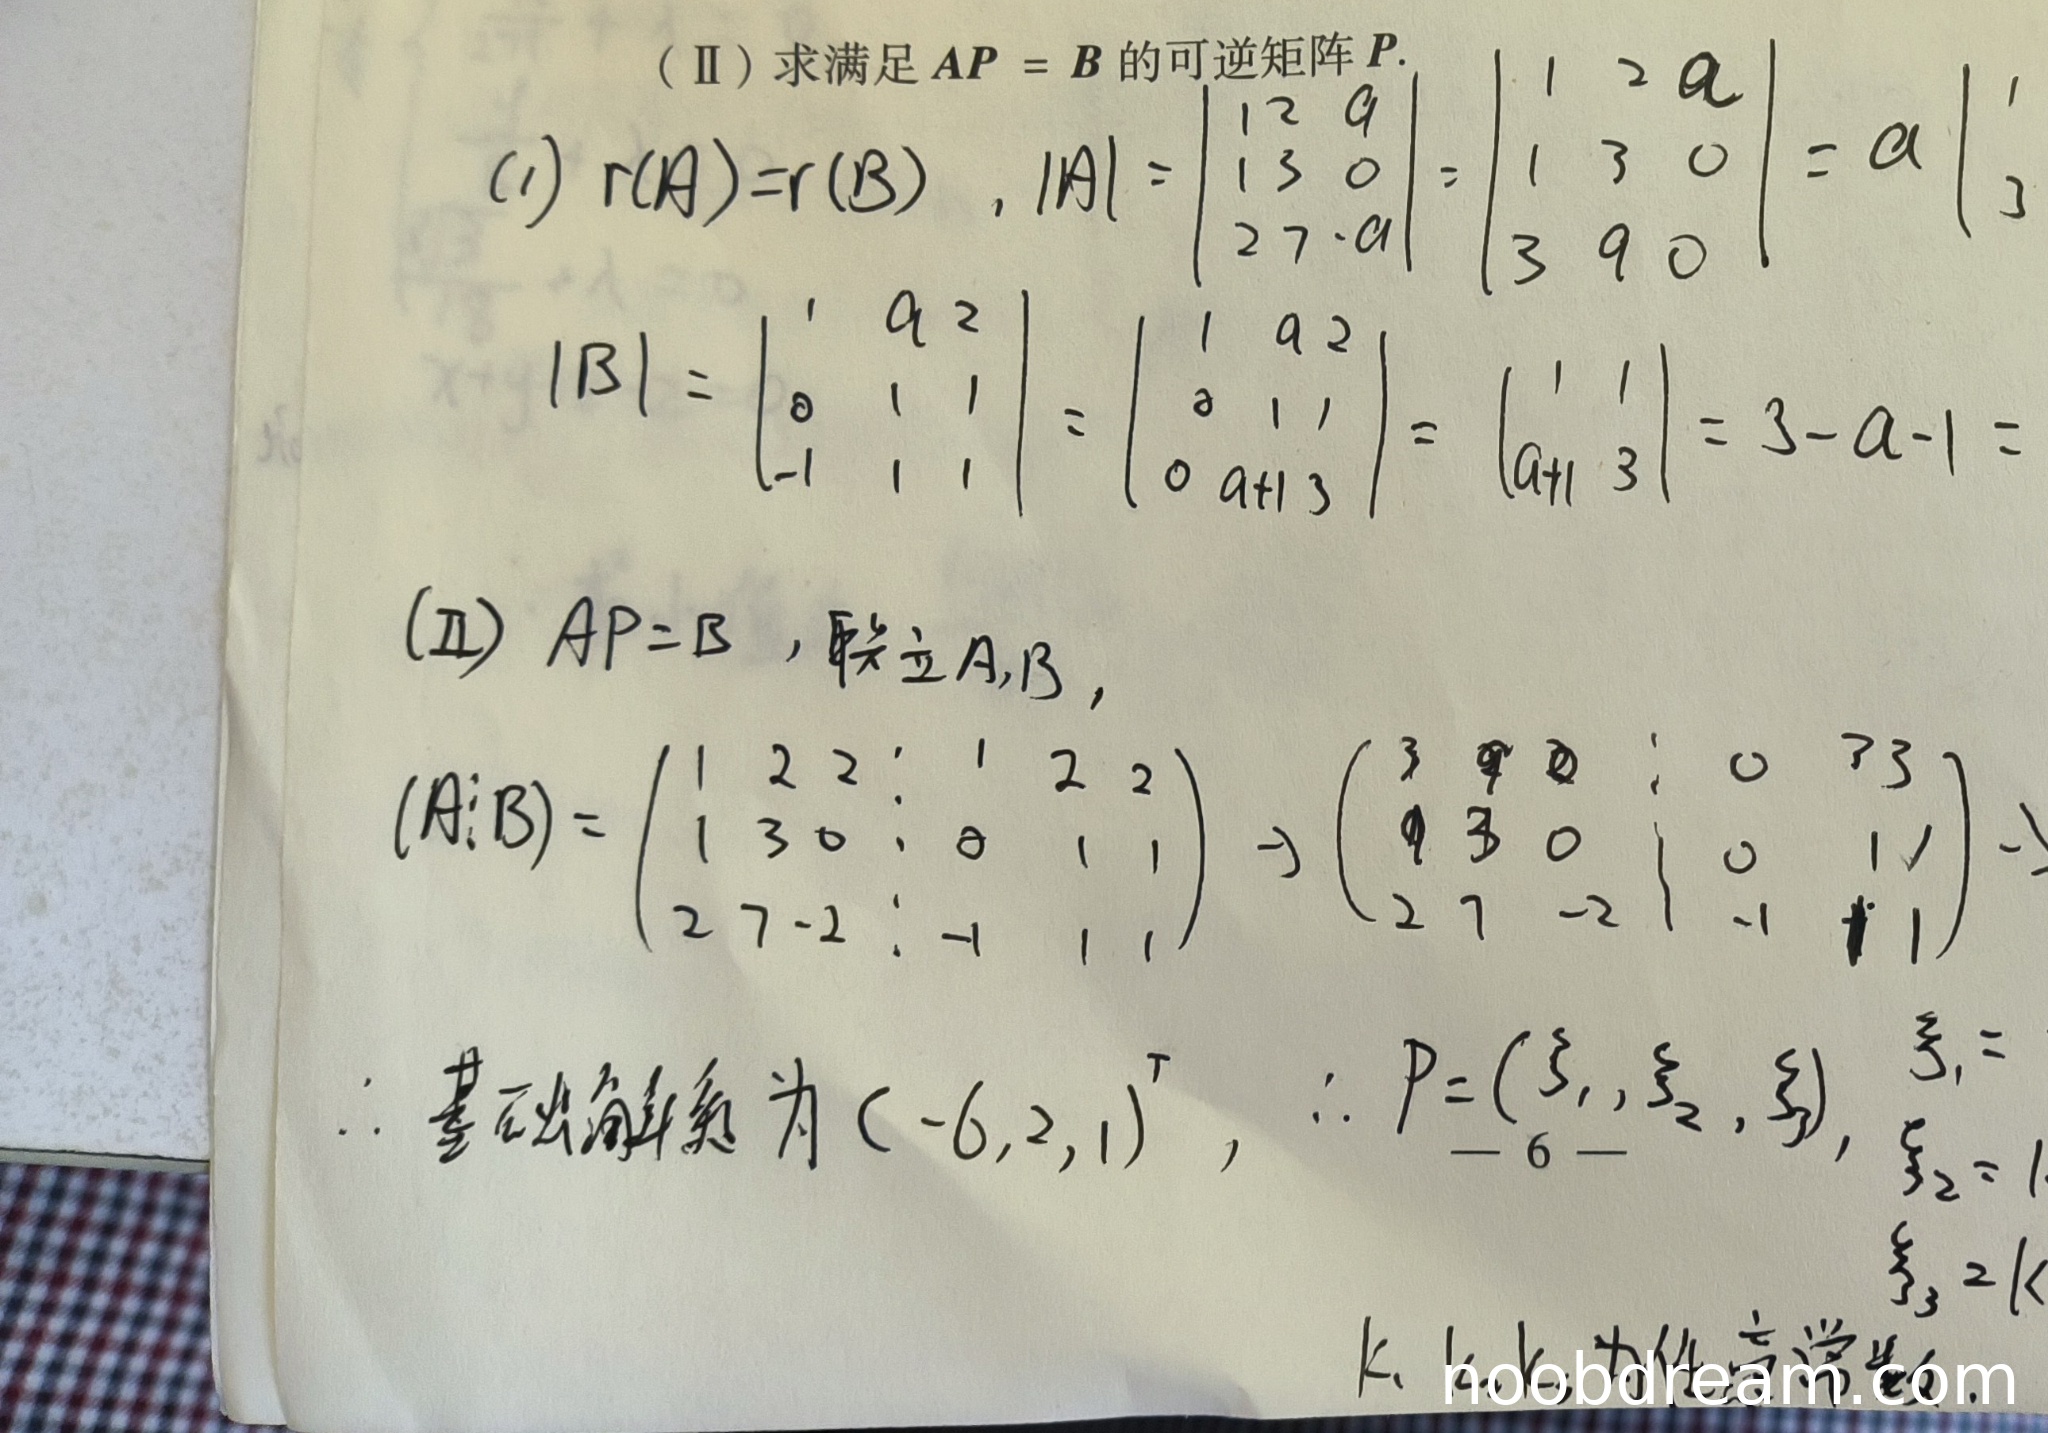 (Ⅱ)求满足 AP = B 的可逆矩阵 P.
(1) r(A)=r(B) , |A| = | 1 2 a ; 1 3 0 ; 2 7 -a | = | 1 2 a ; 1 3 0 ; 3 9 0 | = a | 1 ; 3
|B| = | 1 a 2 ; 0 1 1 ; -1 1 1 | = | 1 a 2 ; 0 1 1 ; 0 a+1 3 | = | 1 1 ; a+1 3 | = 3-a-1 =
(Ⅱ) AP=B , 联立A,B,
(A⋮B) = ( 1 2 2 ⋮ 1 2 2 ; 1 3 0 ⋮ 0 1 1 ; 2 7 -2 ⋮ -1 1 1 ) → ( 3 9 0 ⋮ 0 3 3 ; 1 3 0 | 0 1 1 ; 2 7 -2 | -1 1 1 ) →
∴ 基础解系为 (-6,2,1)ᵀ , ∴ P=(ξ₁,ξ₂,ξ₃), ξ₁=
ξ₂=k
ξ₃=k
— 6 —
k₁ k₂ k₃为任意常数.
noobdream.com